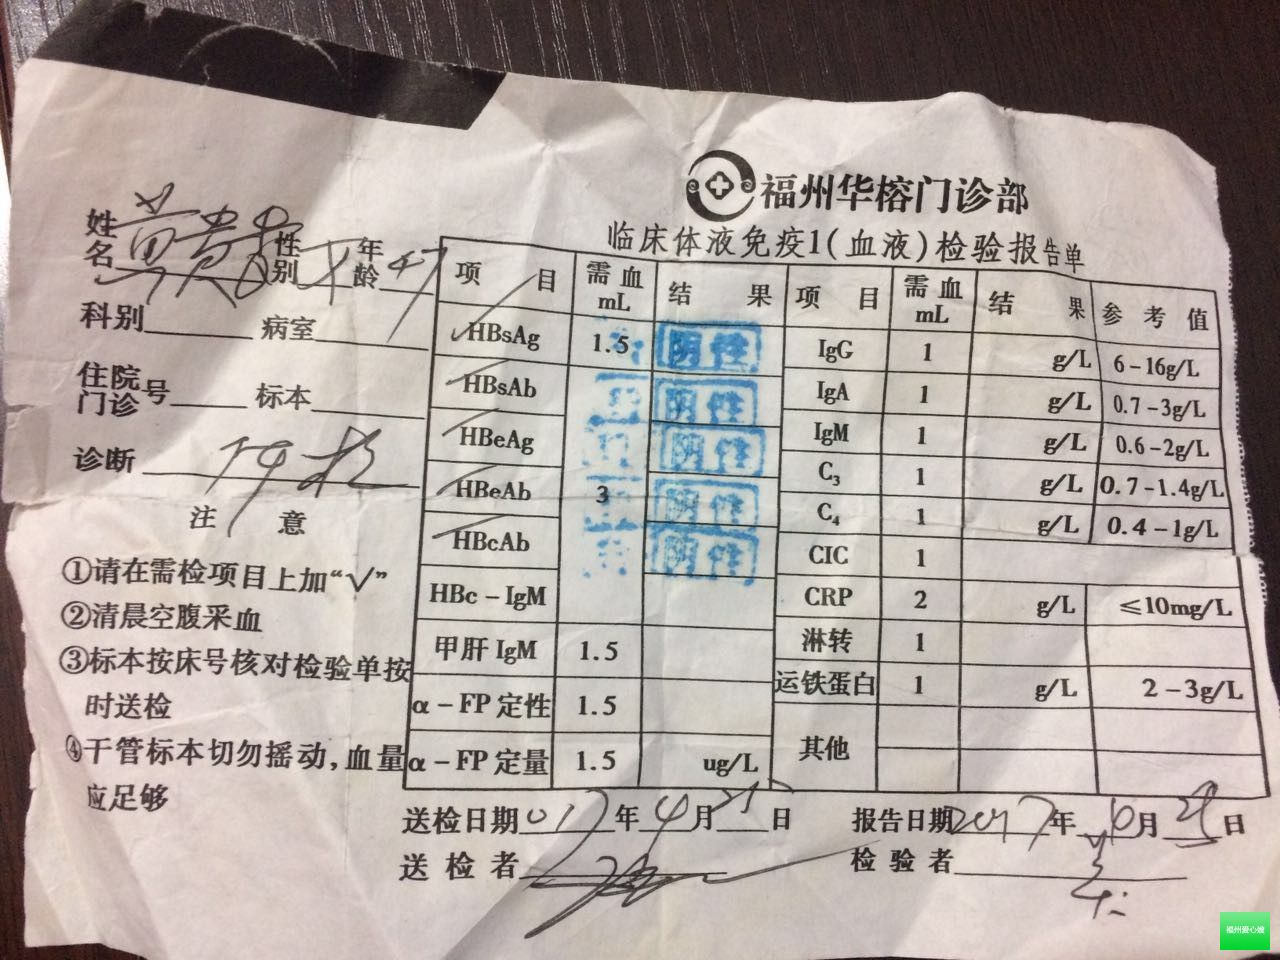 福州华榕门诊部
临床体液免疫1(血液)检验报告单
姓名 性别 年龄
科别 病室
住院门诊号 标本
诊断
注 意
①请在需检项目上加“√”
②清晨空腹采血
③标本按床号核对检验单按
时送检
④干管标本切勿摇动,血量
应足够
项 目 需血mL 结 果 项 目 需血mL 结 果 参考值
HBsAg 1.5 阴性 IgG 1 g/L 6-16g/L
HBsAb 阴性 IgA 1 g/L 0.7-3g/L
HBeAg 阴性 IgM 1 g/L 0.6-2g/L
HBeAb 3 阴性 C3 1 g/L 0.7-1.4g/L
HBcAb 阴性 C4 1 g/L 0.4-1g/L
HBc-IgM CIC 1
甲肝 IgM 1.5 CRP 2 g/L ≤10mg/L
α-FP定性 1.5 淋转 1
α-FP定量 1.5 ug/L 运铁蛋白 1 g/L 2-3g/L
其他
送检日期 年 4月 日 报告日期2017年 月 日
送检者 检验者
福州爱心嫂